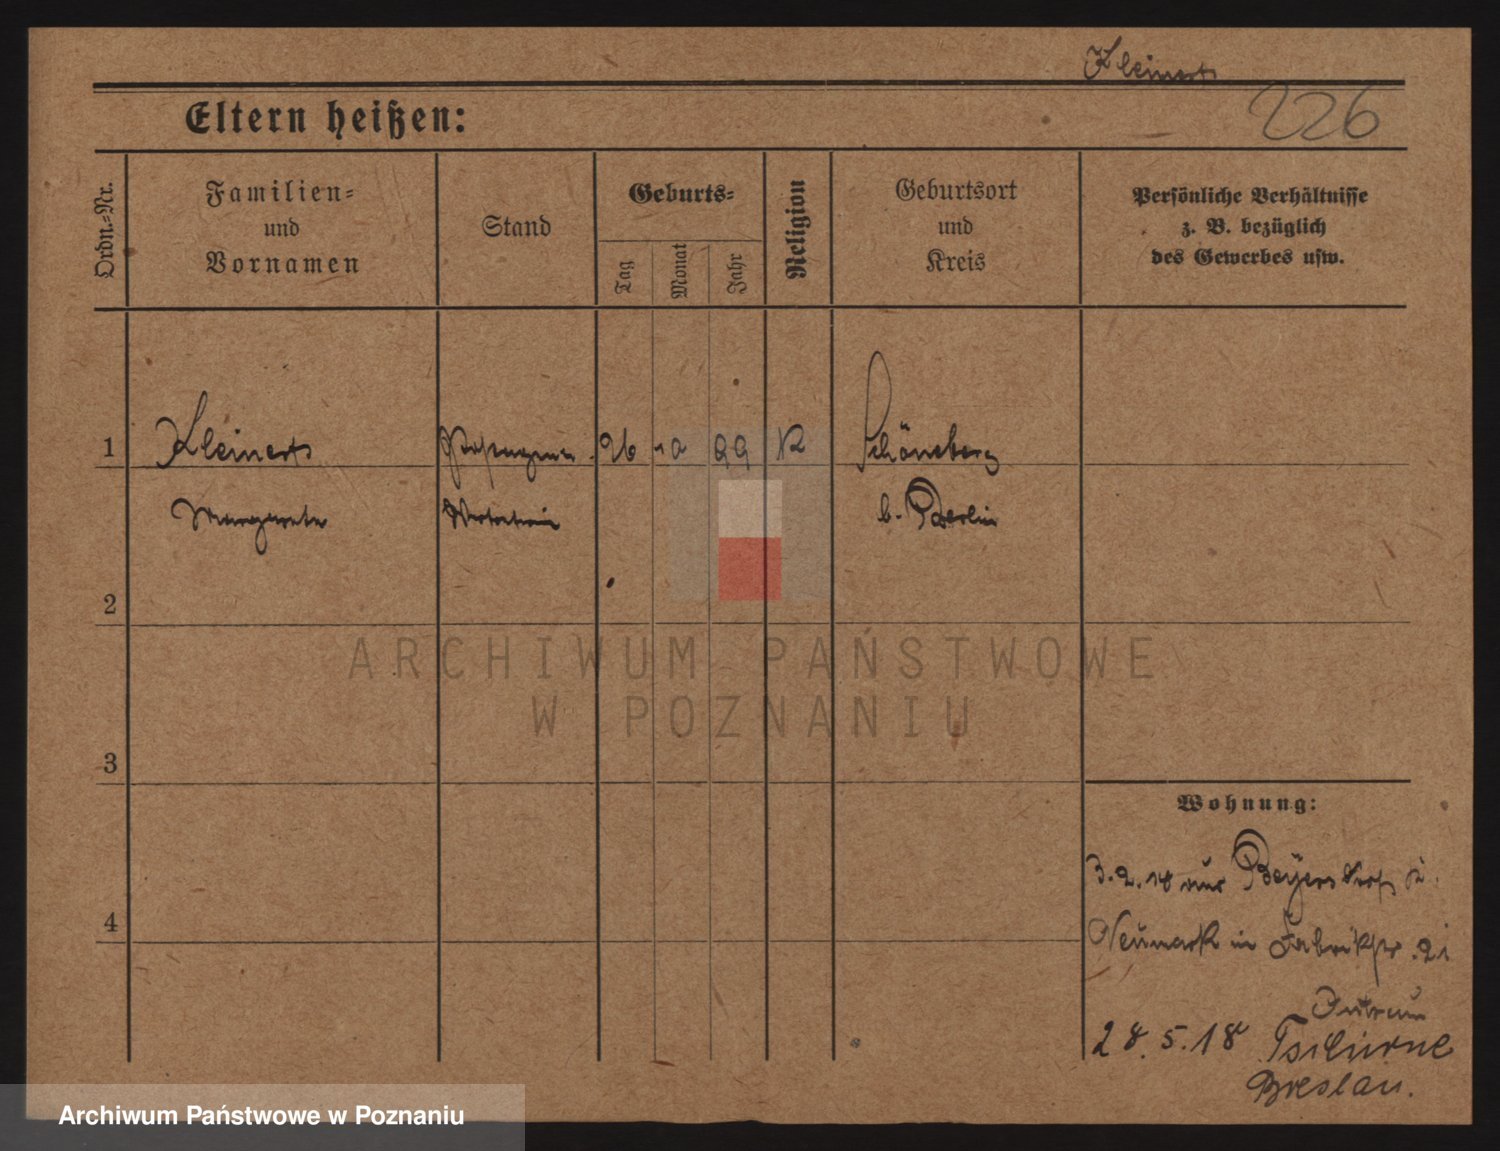 Kleinert
Eltern heißen:
226
Ordn.-Nr.
Familien-
und
Vornamen
Stand
Geburts-
Tag
Monat
Jahr
Religion
Geburtsort
und
Kreis
Persönliche Verhältnisse
z. B. bezüglich
des Gewerbes usw.
1
Kleinert
26
10
99
K
Schöneberg
Margarete
b. Berlin
2
ARCHIWUM PAŃSTWOWE
W POZNANIU
3
Wohnung:
3.2.18 aus
4
Neumark in Fabrikstr. 21
28.5.18
Breslau.
Archiwum Państwowe w Poznaniu